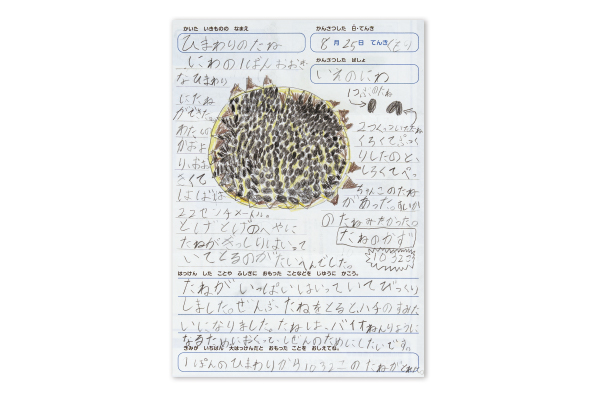 かいた いきものの なまえ
ひまわりのたね
かんさつした 日・てんき
8月25日 てんき
かんさつした ばしょ
いえのにわ
にわの1ぱんおおき
なひまわり
にたね
ができた。
わたしの
かおよ
り、おお
きくて
はばは
22センチメートル。
とげとげのへやに
たねがぎっしりはいって
いてとるのがたいへんでした。
1つぶのたね
2つくっついたたね
くろくてぷっくり
りしたのと、
しろくてぺ。
ちゃんこのたね
があった。すいか
のたねみたかった。
たねのかず
10323
はっけん した ことや ふしぎに おもった ことなどを じゆうに かこう。
たねがいっぱいはいっていてびっくり
しました。ぜんぶたねをとるとハチのすみた
いになりました。たねは、バイオねんりょうに
なるためにおくって、しぜんのためにしたいです。
きみが いちばん 大はっけんだと おもった ことを おしえてね。
1ぽんのひまわりから1032こ のたねがとれ